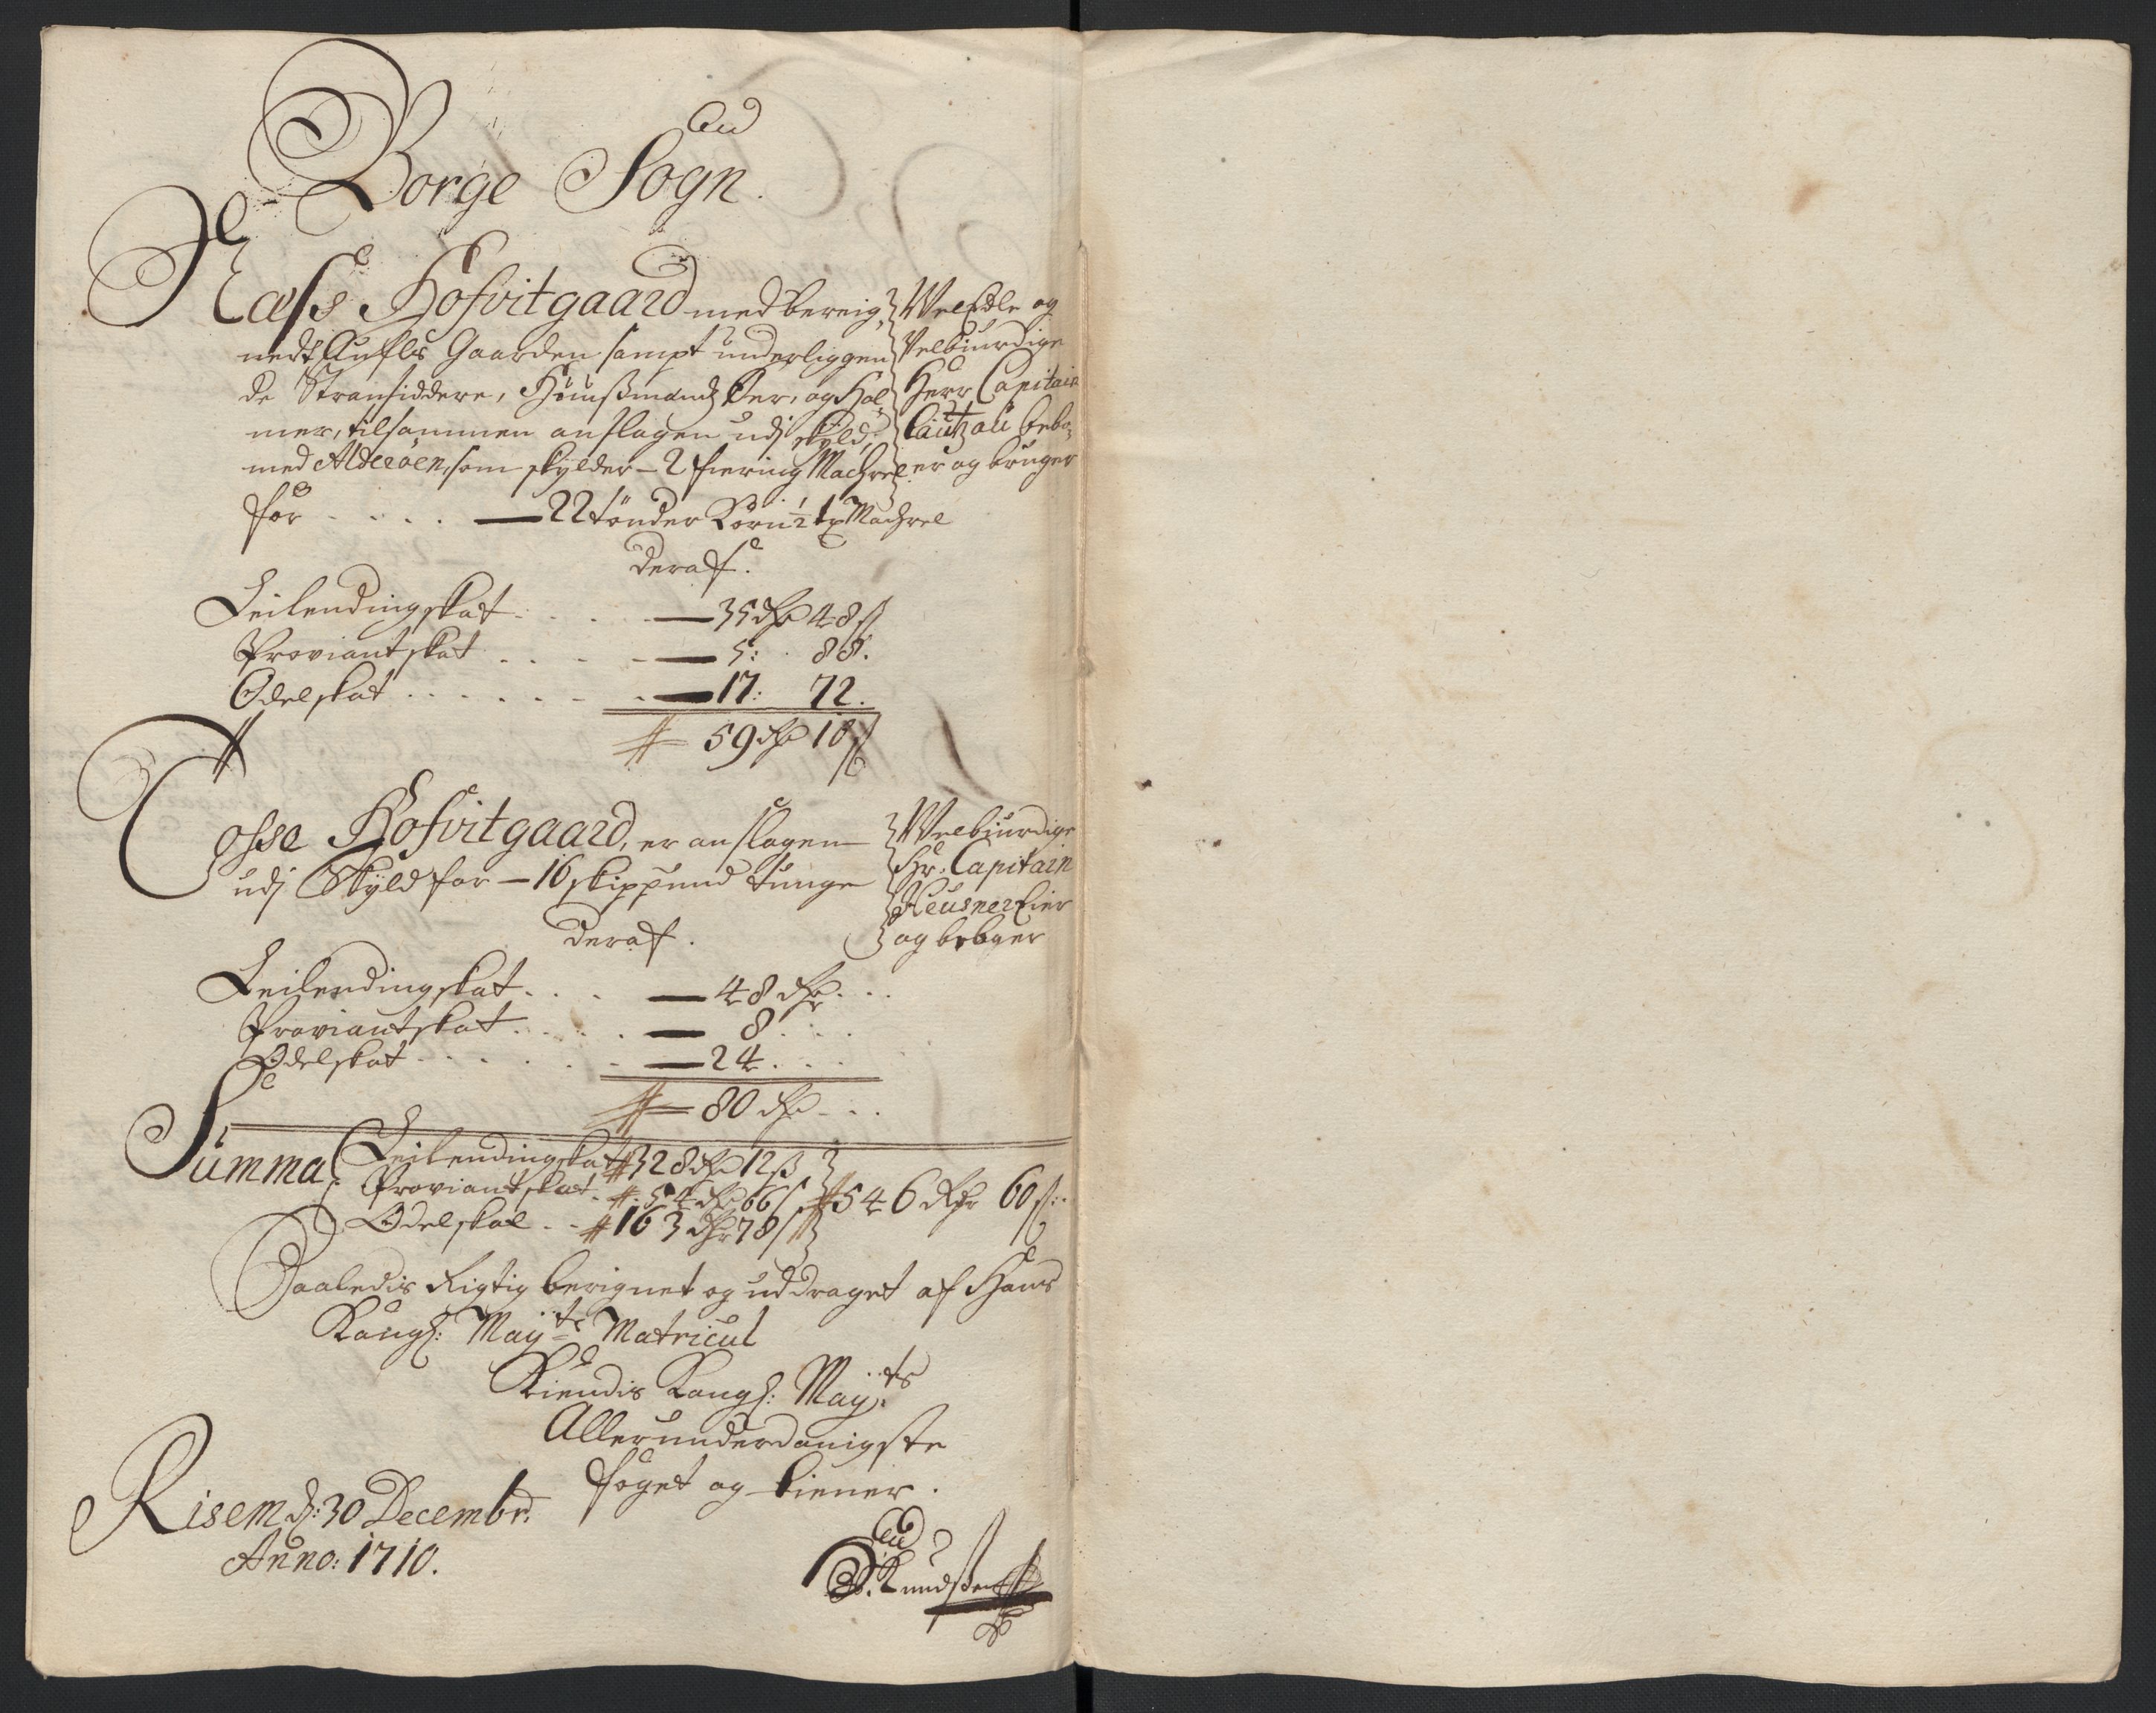 Borge Sogn.
Næss Hofvitgaard med bereig-
nedt Aufls Gaarden sampt underliggen
de Stransiddere, Huusmænd, Øer, og Hol-
mer, tilsammen anslagen udj skyld,
med Aldeeöen, som skylder - 2 fiering Machrel
for - - - - 22 tönder Korn ½ tø Machrel
Vel Edle og
Velbiurdige
Herr Capitain
Cautzau bebo-
er og bruger
deraf.
Leilendingskat - - - 35 dr 48 s
Proviantskat - - - 5: 88.
Odelskat - - - 17: 72.
59 dr 18 s
Tosse Hofvitgaard, er anslagen
udj Skyld for - 16 skippund tunge
Welbiurdige
Hr. Capitain
Heusner Eier
og beboer
deraf.
Leilendingskat - - - 48 dr - -
Proviantskat - - - 8 - - -
Odelskat - - - 24 - - -
80 dr - - -
Summa
Leilendingskat 328 dr 12 s
Proviantskat - 54 dr 66 s
Odelskat - - 163 dr 78 s
546 dr 60 s:
Saaledis Rigtig beregnet og uddraget af Hans
Kongl: Mayts Matricul
Kiendis Kongl: Mayts
Allerunderdanigste
foget og tiener.
Risem d: 30 Decembr.
Anno: 1710.
Knudsen